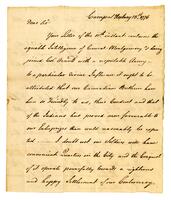 Dear Sir
Your Letter of the 10th instant contains the
agreeable Intelligence of General Montgomery's being
joined Col. Arnold with a respectable Army
to a particular divine Influence it ought to be
attributed that our Canadian Brethren have
been so friendly to us, their Conduct and that
of the Indians has proved more favourable to
our Enterprizes than could reasonably be expec
ted I doubt not our Soldiers will have
convenient Quarters in the City and the Conquest
of it operate powerfully towards a righteous
and happy Settlement of our Controversy.